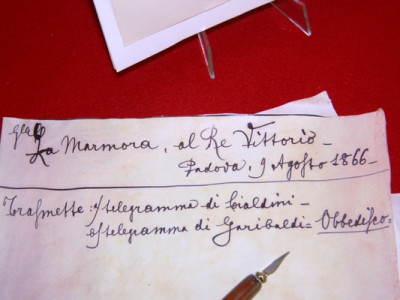 La Marmora, al Re Vittorio-
Padova, 9 Agosto 1866-
Trasmette: telegramma di Cialdini-
telegramma di Garibaldi= Obbedisco=